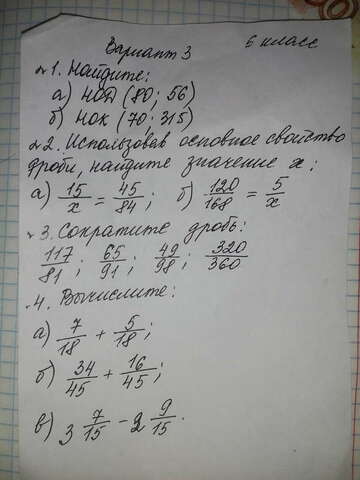 Вариант 3 6 класс
№1. Найдите:
а) НОД (80; 56)
б) НОК (70; 315)
№2. Использовав основное свойство
дроби, найдите значение x:
а) 15/x = 45/84; б) 120/168 = 5/x
№3. Сократите дробь:
117/81; 65/91; 49/98; 320/360
№4. Вычислите:
а) 7/18 + 5/18;
б) 34/45 + 16/45;
в) 3 7/15 - 2 9/15.